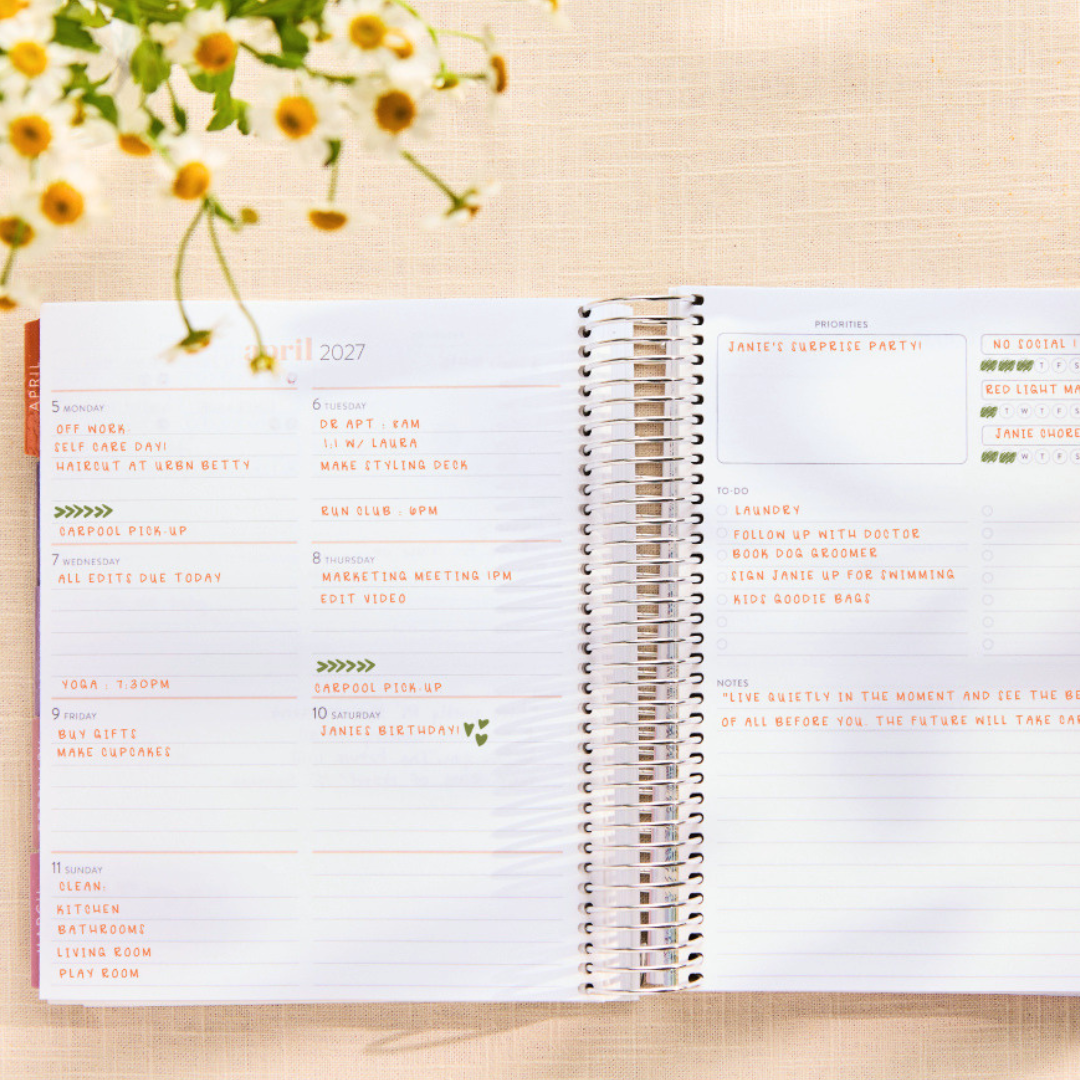 APRIL
april 2027
5 MONDAY
OFF WORK
SELF CARE DAY!
HAIRCUT AT URBN BETTY
CARPOOL PICK-UP
6 TUESDAY
DR APT : 8AM
1:1 W/ LAURA
MAKE STYLING DECK
RUN CLUB : 6PM
7 WEDNESDAY
ALL EDITS DUE TODAY
YOGA : 7:30PM
8 THURSDAY
MARKETING MEETING 1PM
EDIT VIDEO
CARPOOL PICK-UP
9 FRIDAY
BUY GIFTS
MAKE CUPCAKES
10 SATURDAY
JANIES BIRTHDAY!
11 SUNDAY
CLEAN:
KITCHEN
BATHROOMS
LIVING ROOM
PLAY ROOM
MARCH
PRIORITIES
JANIE'S SURPRISE PARTY!
NO SOCIAL
T F S
RED LIGHT MA
T W T F S
JANIE CHORE
W T F S
TO-DO
LAUNDRY
FOLLOW UP WITH DOCTOR
BOOK DOG GROOMER
SIGN JANIE UP FOR SWIMMING
KIDS GOODIE BAGS
NOTES
"LIVE QUIETLY IN THE MOMENT AND SEE THE BE
OF ALL BEFORE YOU. THE FUTURE WILL TAKE CAR